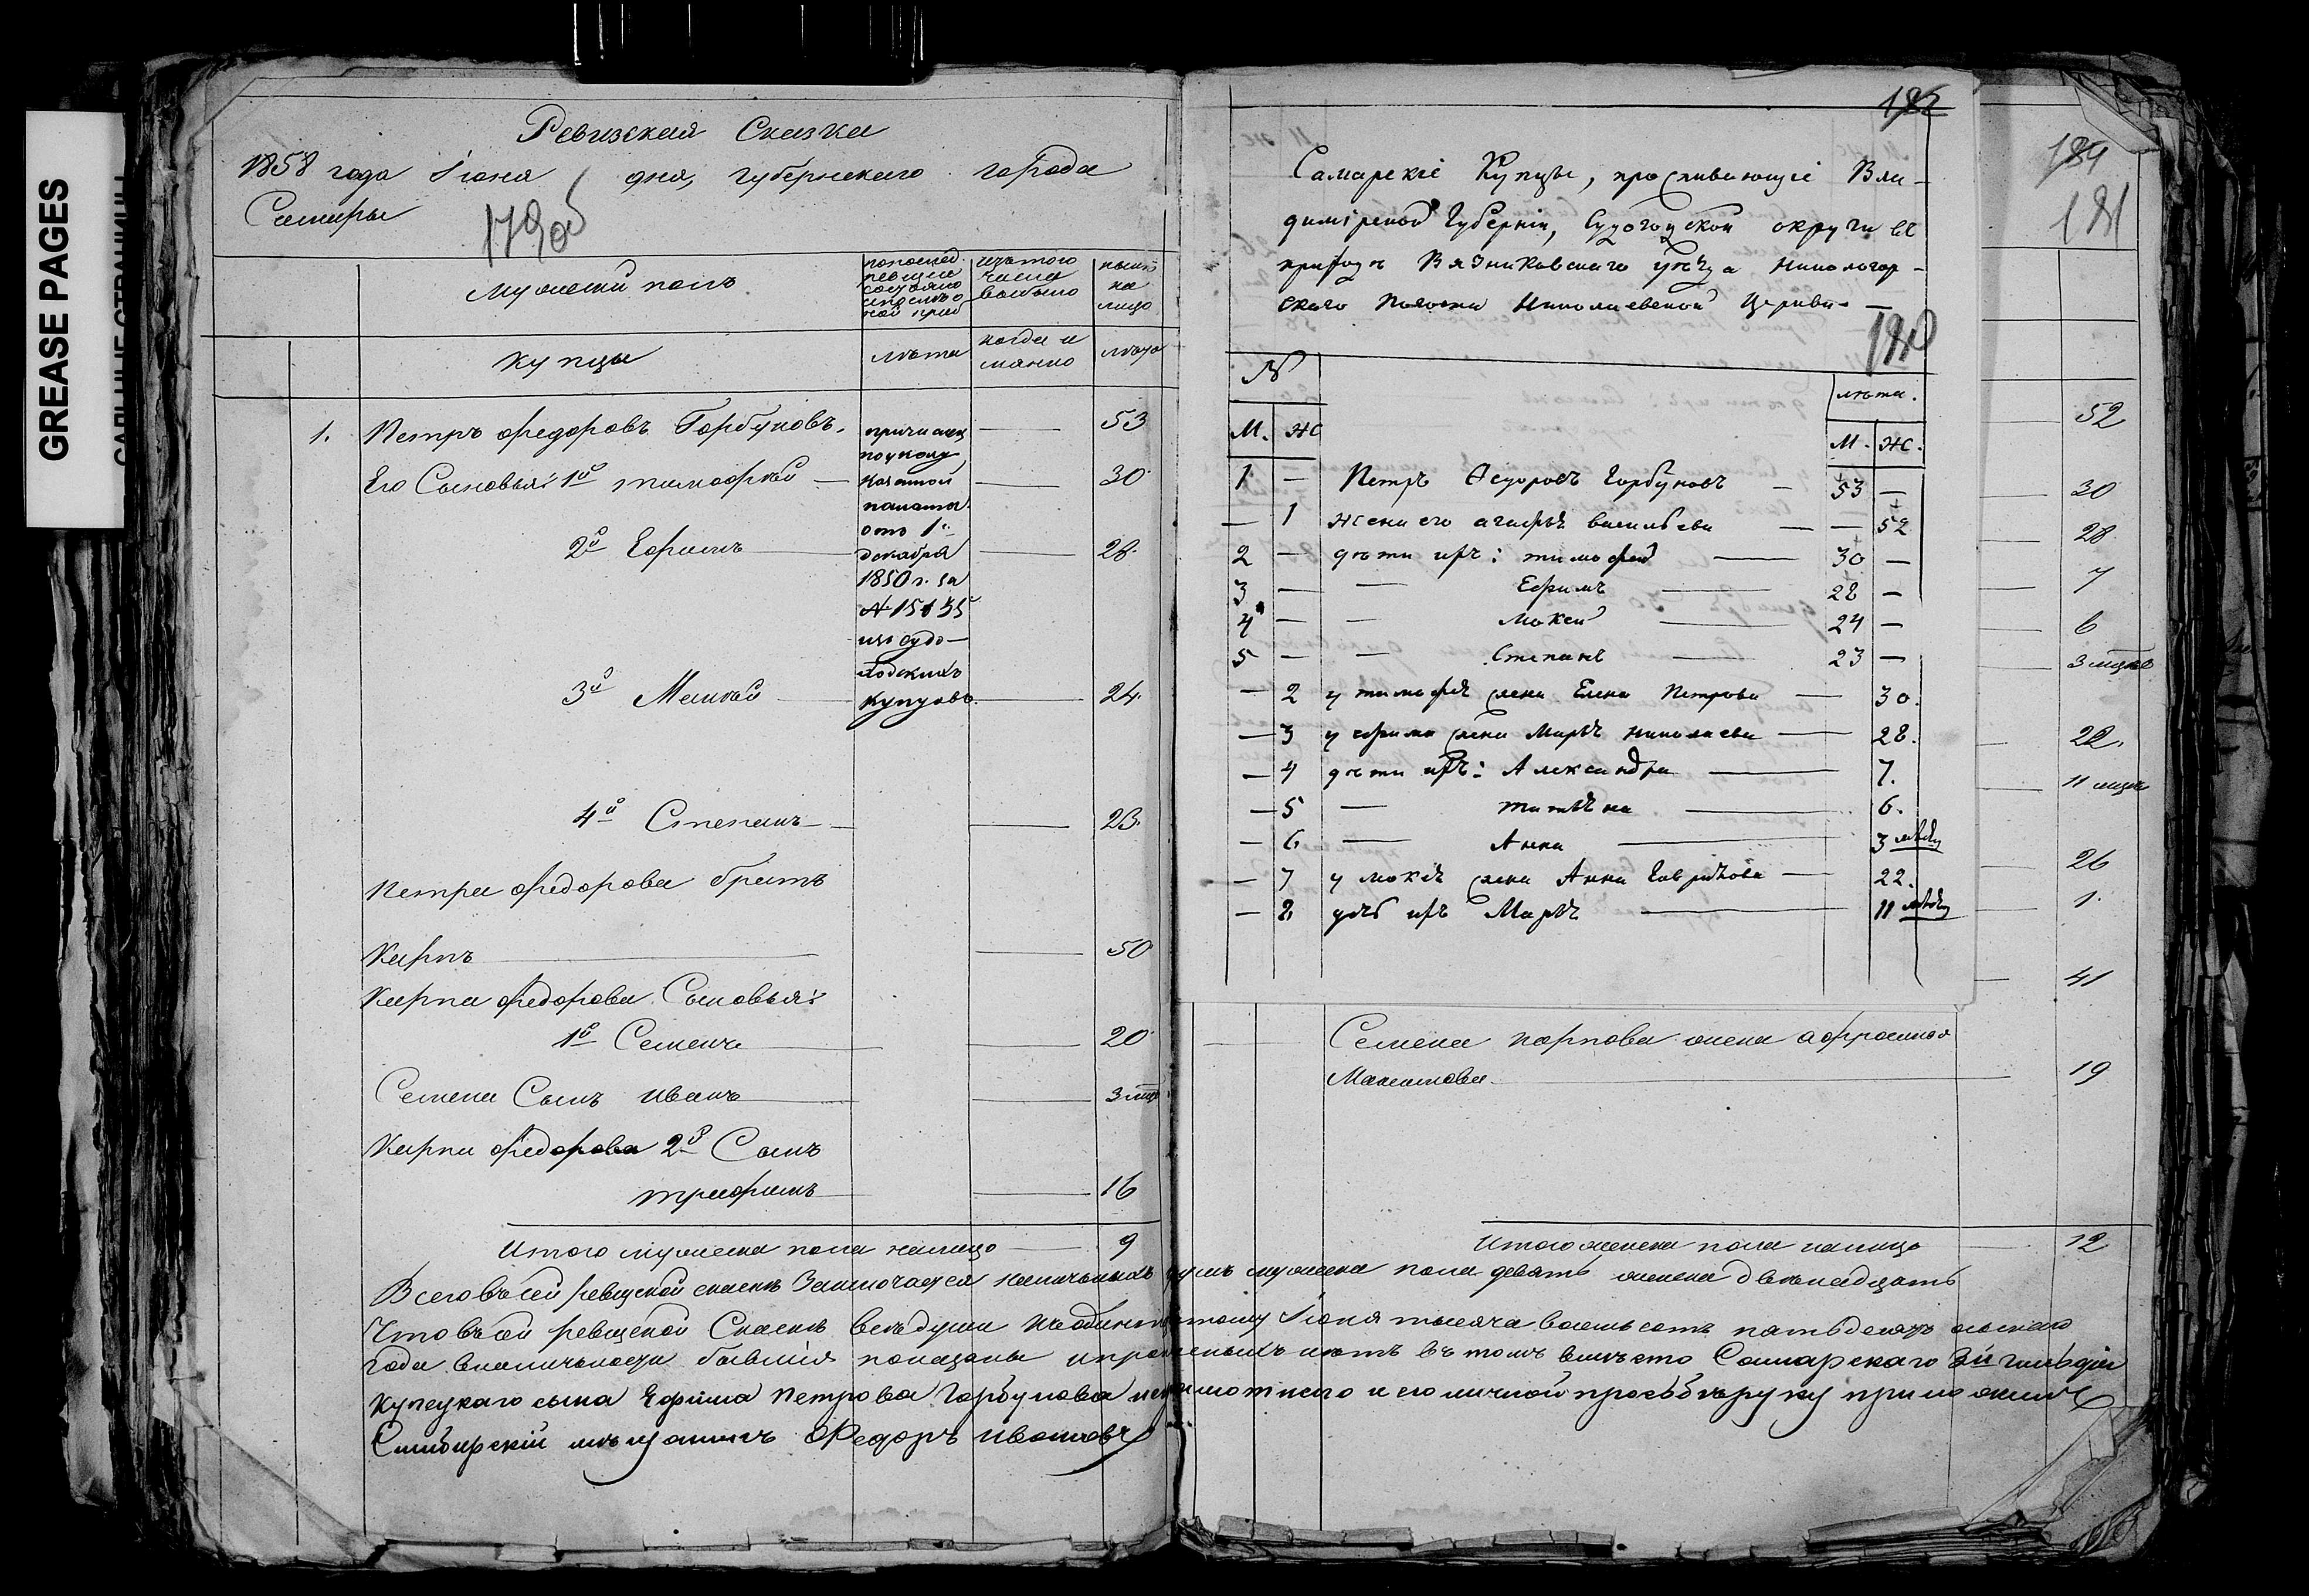 GREASE PAGES
Ревизская Сказка
1858 года Iюня дня, губернскаго города
Самары
179об
Мужеской полъ
лѣта
когда и
лѣта
Купцы
1. Петръ Федоровъ Горбуновъ. — 53
причислен
по указу
Казенной
палаты
отъ 1го
декабря
1850 г. за
№ 15135
изъ судо-
годскихъ
купцовъ.
Его Сыновья: 1й Тимофей — 30
2й Ефимъ — 28.
3й Макей — 24.
4й Степанъ — 23.
Петра Федорова братъ
Карпъ — 50
Карпа Федорова Сыновья:
1й Семенъ — 20
Семена Сынъ Иванъ — 3 мц
Карпа Федорова 2й Сынъ
Трифимъ — 16
Итого мужеска пола налицо — 9
182
Самарскіе Купцы, проживающіе Вла-
димірской Губерніи, Судогодской округи въ
приходѣ Вязниковскаго уѣзда Никологор-
скаго Погоста Николаевской Церкви. —
180
№ лѣта.
М. Ж М. Ж.
1 — Петръ Ѳедоровъ Горбуновъ — 53 —
— 1 жена его Агафья Васильева — — 52
2 — дѣти ихъ: Тимофей — 30 —
3 — — Ефимъ — 28 —
4 — — Мокей — 24 —
5 — — Степанъ — 23 —
— 2 у Тимофея жена Елена Петрова — 30.
— 3 у Ефима жена Марья Николаева — 28.
— 4 дѣти ихъ: Александра — 7.
— 5 — Татьяна — 6.
— 6 — Анна — 3 мѣсяц
— 7 у Мокея жена Анна — 22.
— 8 дочь ихъ Марья — 11 мѣсяц
184
181
52
30
28
7
6
3 мцъ
22.
11 мцъ
26
1.
41
Семена Карпова жена Афросинья
Максимова — 19
Итого женска пола налицо — 12
Всего въ сей ревизской сказкѣ Заключается наличныхъ душъ мужеска пола девять женска двенадцать
Что въ сей ревизской Сказкѣ всѣ души Iюня тысяча восемьсотъ пятьдесятъ осьмаго
года вналичности бывшія показаны и нѣтъ въ томъ вмѣсто Самарскаго 3й гильдіи
Купецкаго сына Ефима Петрова Горбунова неграмотнаго и его личной прозьбѣ руку приложилъ
Симбирскій мѣщанинъ Федоръ Ивановъ